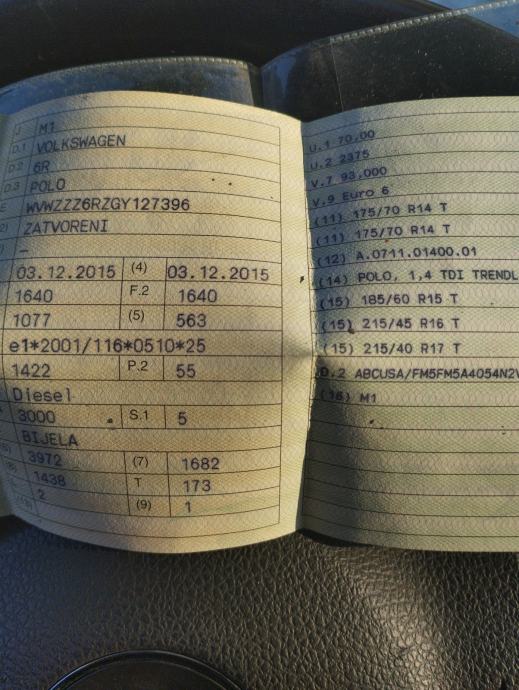 J M1
D.1 VOLKSWAGEN
D.2 6R
D.3 POLO
E WVWZZZ6RZGY127396
2) ZATVORENI
–
03.12.2015 (4) 03.12.2015
1640 F.2 1640
1077 (5) 563
e1*2001/116*0510*25
1422 P.2 55
Diesel
3000 S.1 5
BIJELA
3972 (7) 1682
1438 T 173
2 (9) 1
U.1 70,00
U.2 2375
V.7 93,000
V.9 Euro 6
(11) 175/70 R14 T
(11) 175/70 R14 T
(12) A.0711.01400.01
(14) POLO, 1,4 TDI TRENDL
(15) 185/60 R15 T
(15) 215/45 R16 T
(15) 215/40 R17 T
D.2 ABCUSA/FM5FM5A4054N2V
(16) M1